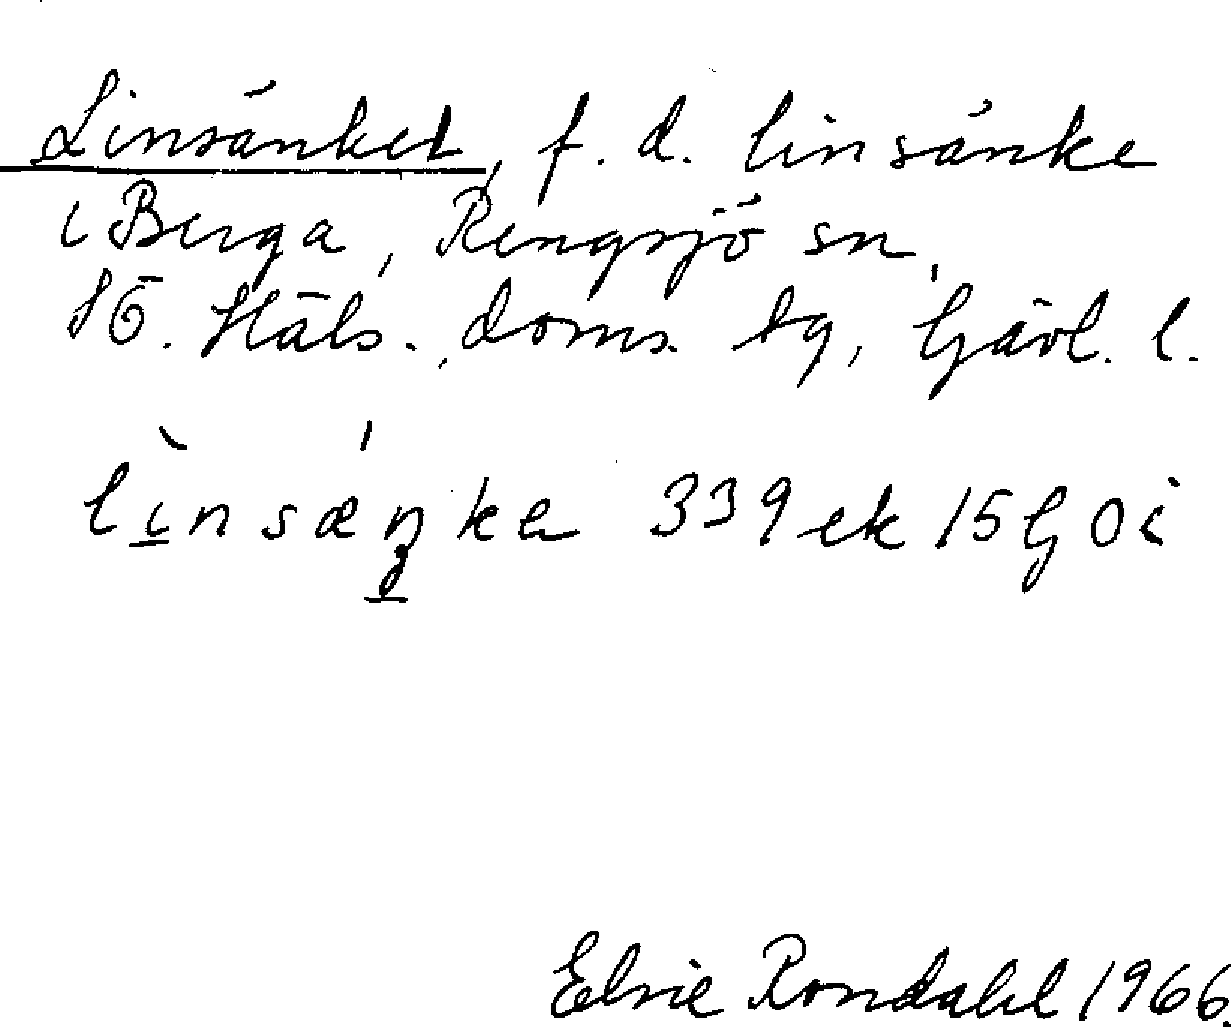 Linsänket, f. d. linsänke
i Berga, Rengsjö sn,
SÖ. Häls. doms. tg, Gävl. l.
lìnsæŋ́ke 339 ek 15G 0i
Elsie Rondahl 1966.